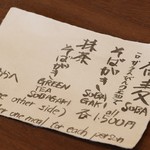 蕎麦
SOBA
そばがき
SOBA
GAKI
各1,500円
抹茶
そばがき
GREEN
TEA
SOBAGAKI
other side)
one meal for each person